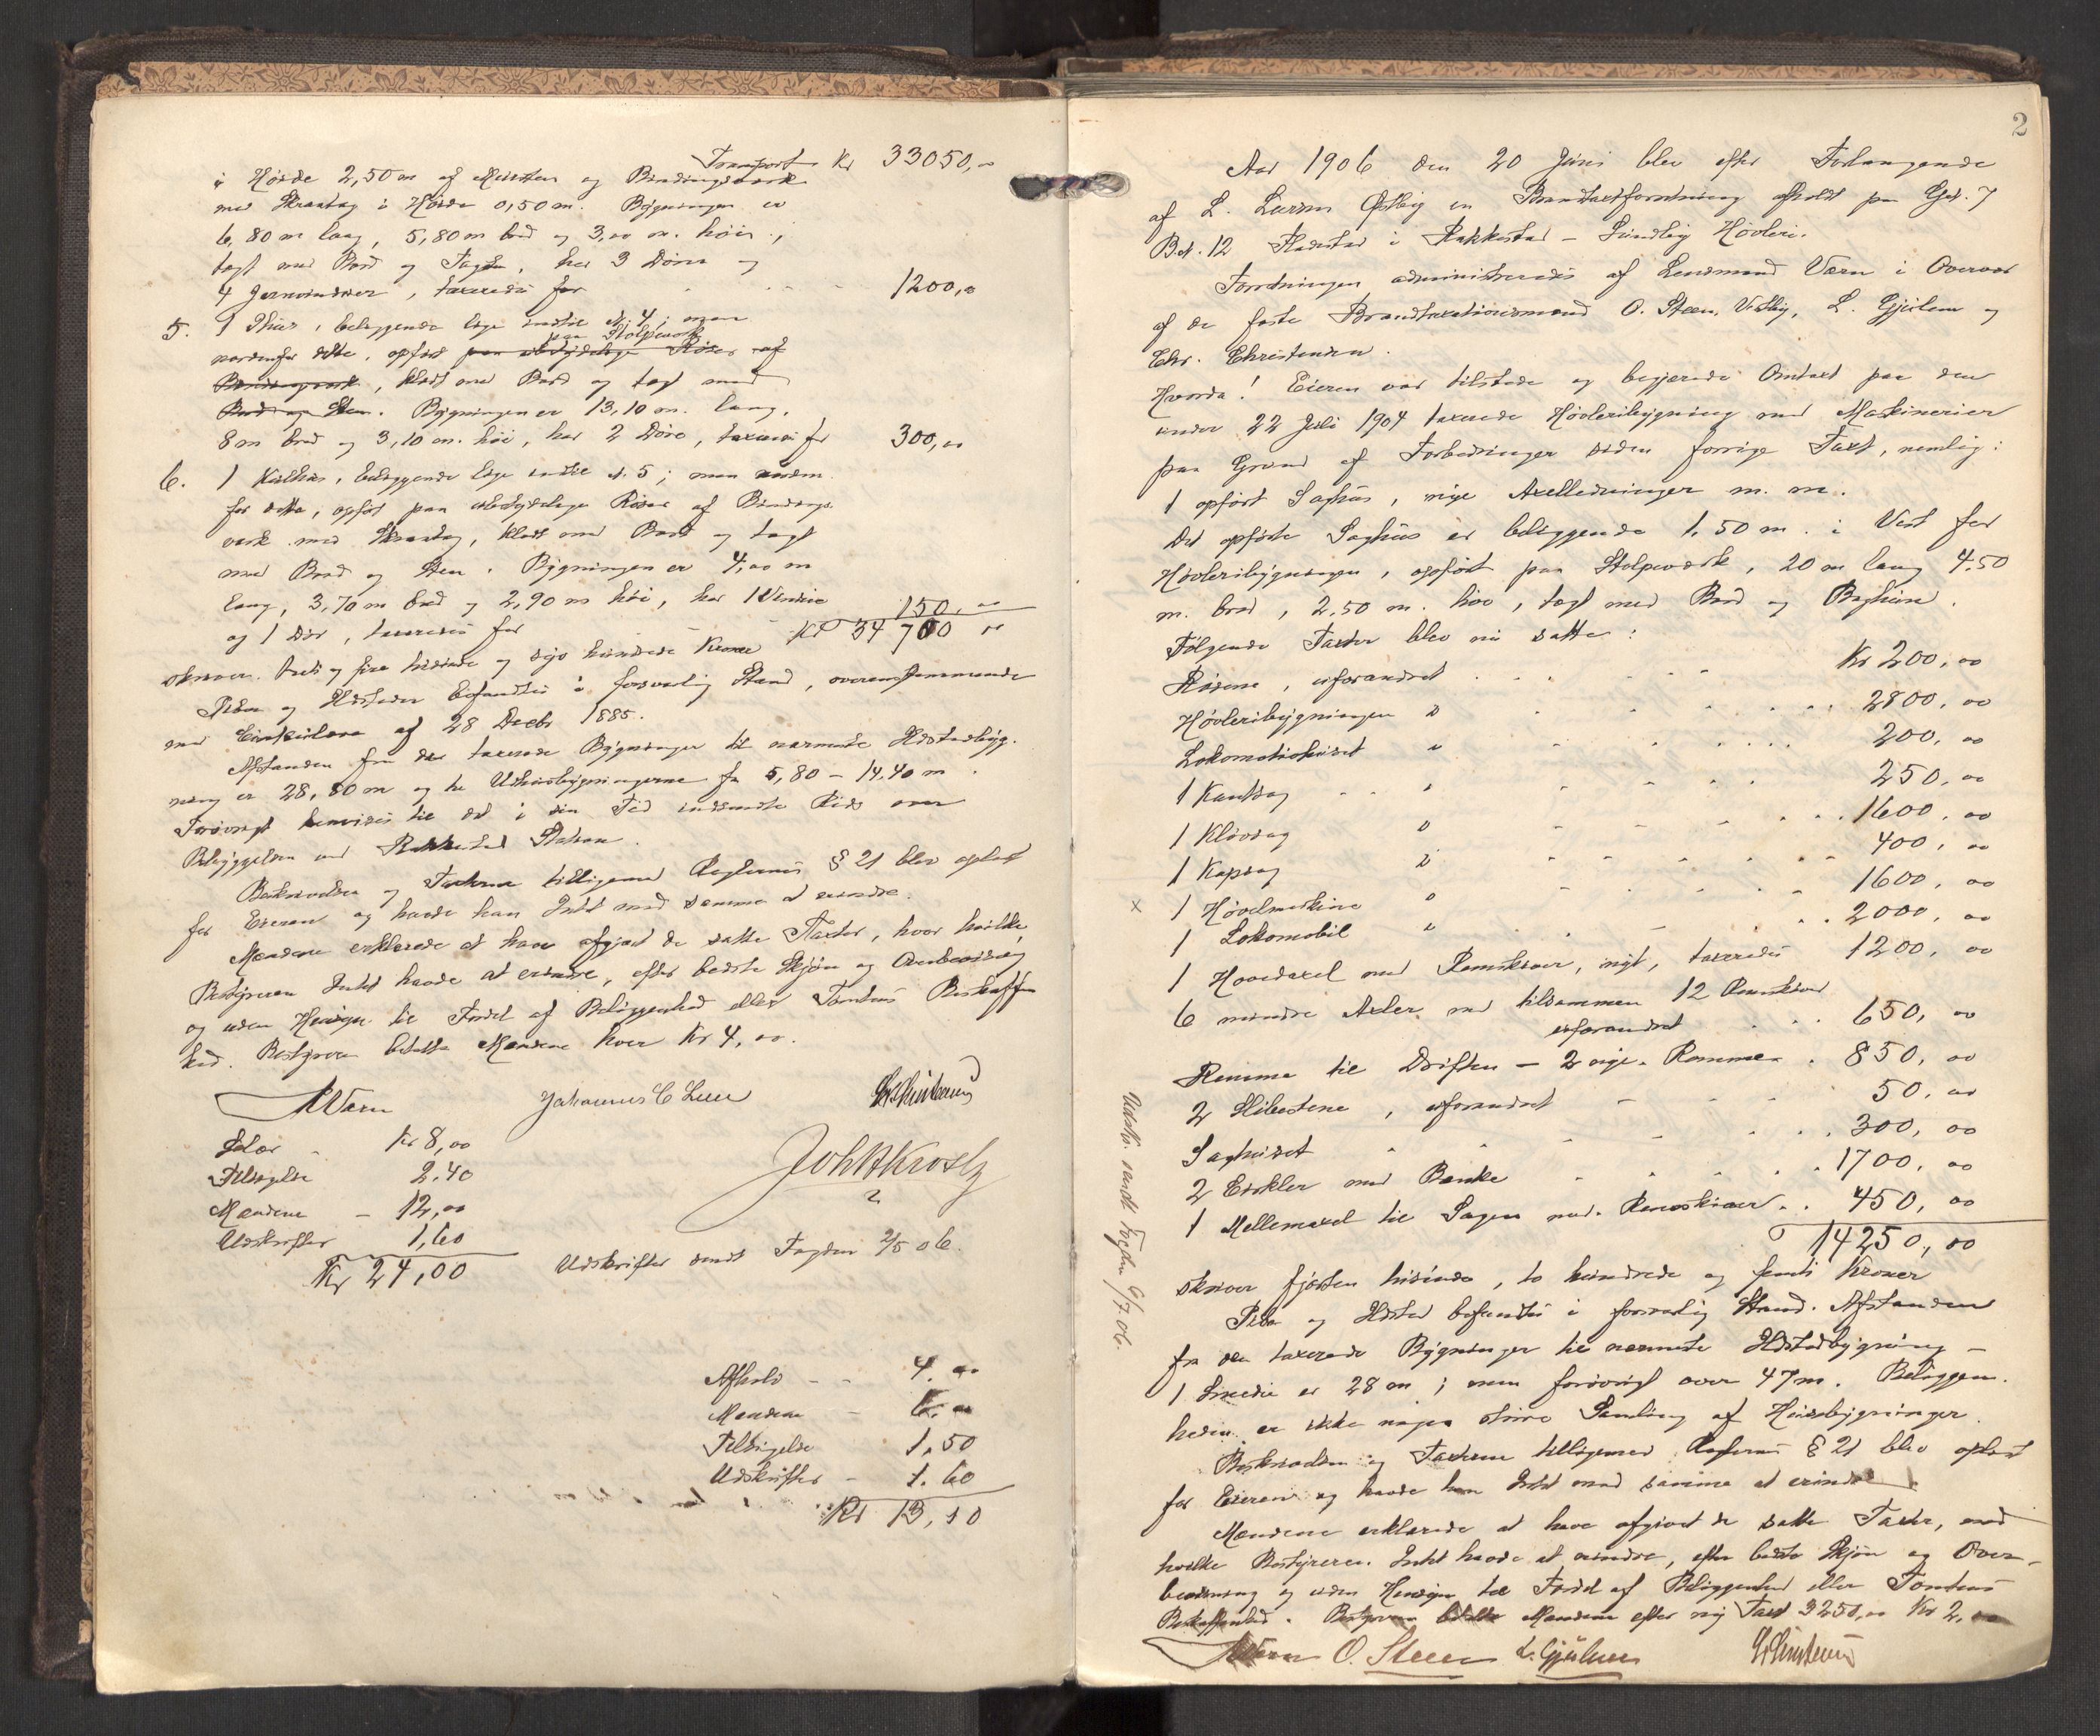 Transport Kr 33050,-
i Høide 2,50 m af Mursten og Bindingsværk
med Skraatag i Høide 0,50 m. Bygningen er
6,80 m lang, 5,80 m bred og 3,00 m. høi,
tagt med Bord og Tagsten, har 3 Døre og
4 Jernvinduer, taxeredes for 1200,00
5. 1 Skur, beliggende lige indtil N. 4; men
nordenfor dette, opført paa ubetydelige Røser af
paa Stolpeværk
Bindingsværk, klædt med Bord og tagt med
Bord og Sten. Bygningen er 13,10 m. lang,
8 m bred og 3,10 m. høi, har 2 Døre, taxeredes for 300,00
6. 1 Kulhus, beliggende lige indtil N. 5; men norden
for dette, opført paa ubetydelige Røser af Bindings-
værk med Skraatag, klædt med Bord og tagt
med Bord og Sten. Bygningen er 4,00 m
lang, 3,70 m bred og 2,90 m høi, har 1 Vindue
og 1 Dør, taxeredes for 150,00
Kr 34700 00
skriver treti og fire tusinde og syv hundrede Kroner
Piber og Ildsteder befandtes i forsvarlig Stand, overensstemmende
med Cirkulære af 28 Decbr 1885.
Afstanden fra de taxerede Bygninger til nærmeste Ildstedbyg-
ning er 28,80 m og til Udhusbygningerne fra 5,80 - 14,40 m.
Forøvrigt henvises til det i sin Tid indsendte Rids over
Bebyggelsen ved Rakkestad Station.
Beskrivelsen og Taxterne tilligemed Reglernes § 21 blev oplæst
for Eieren og havde han Intet mod samme at erindre.
Mændene erklærede at have afgivet de satte Taxter, hvor hvilke
Bestyreren Intet havde at erindre, efter bedste Skjøn og Overbevisning
og uden Hensyn til Fordel af Beliggenhed eller Tomtens Beskaffen
hed. Bestyreren betalte Mændene hver Kr 4,00.
Wærn Johannes C Lund Chr Christensen
Joh A Krosby
Salær - Kr 8,00
Tilsigelse 2.40
Mændene - 12,00
Udskrifter 1,60
Kr 24,00
Udskrifter sendt Fogden 2/5 06.
Afhold - - 4.00
Mændene - 6.00
Tilsigelse 1,50
Udskrifter - 1.60
Kr 13,10
2
Aar 1906 den 20 Juni blev efter Forlangende
af L. Østby en Brandtaxtforretning afholdt paa Gd. 7
Bd. 12 Fladstad i Rakkestad - Sundby Høvleri.
Forretningen administreredes af Lensmand Wærn i Overvær
af de faste Brandtaxationsmænd O. Steen, Vestby, L. Gjølen og
Chr. Christensen.
Hvorda! Eieren var tilstede og begjærede Omtaxt paa den
under 22 Juli 1904 taxerede Høvleribygning med Maskinerier
paa Grund af Forbedringer siden forrige Taxt, nemlig:
1 opført Saghus, nye Axelledninger m. m.
Det opførte Saghus er beliggende 1,50 m. i Vest for
Høvleribygningen, opført paa Stolpeværk, 20 m lang 4.50
m. bred, 2,50 m. høi, tagt med Bord og Baghun.
Følgende Taxter blev nu satte:
Røserne, uforandret Kr 200,00
Høvleribygningen " 2800,00
Lokomotivhuset " 200,00
1 Kantsag " 250,00
1 Kløvsag " 1600,00
1 Kapsag " 400,00
x 1 Høvelmaskine " 1600,00
1 Lokomobil " 2000,00
1 Hovedaxel med Remskiver, nyt, taxeredes 1200,00
6 mindre Axler med tilsammen 12 Remskiver
uforandret 650,00
Remme til Driften - 2 nye Remmer 850,00
2 Slibestene, uforandret 50,00
Saghuset 300,00
2 Cirkler med Bænke 1700,00
1 Mellemaxel til Sagen med Remskiver 450,00
14250,00
skriver fjorten tusinde, to hundrede og femti Kroner
Piber og Ildsted befandtes i forsvarlig Stand. Afstanden
fra de taxerede Bygninger til nærmeste Ildstedbygning -
1 Smedie er 28 m; men forøvrigt over 47 m. Beliggen-
heden er ikke nogen større Samling af Husbygninger.
Beskrivelsen og Taxterne tilligemed Reglernes § 21 blev oplæst
for Eieren og havde han Intet mod samme at erindre.
Mændene erklærede at have afgivet de satte Taxter, mod
hvilke Bestyreren Intet havde at erindre, efter bedste Skjøn og Over-
bevisning og uden Hensyn til Fordel af Beliggenhed eller Tomtens
Beskaffenhed. Bestyreren betalte Mændene efter ny Taxt 3250,00 Kr 2,00
Wærn O. Steen L. Gjølen Chr Christensen
Udskr. sendt Fogden 6/7 06.